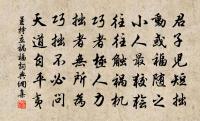 君子見短拙
動或福隨之
小人最狡獪
往往觸禍機
巧者極人力
拙者無所為
巧拙不必問
天道自平夷
禍福